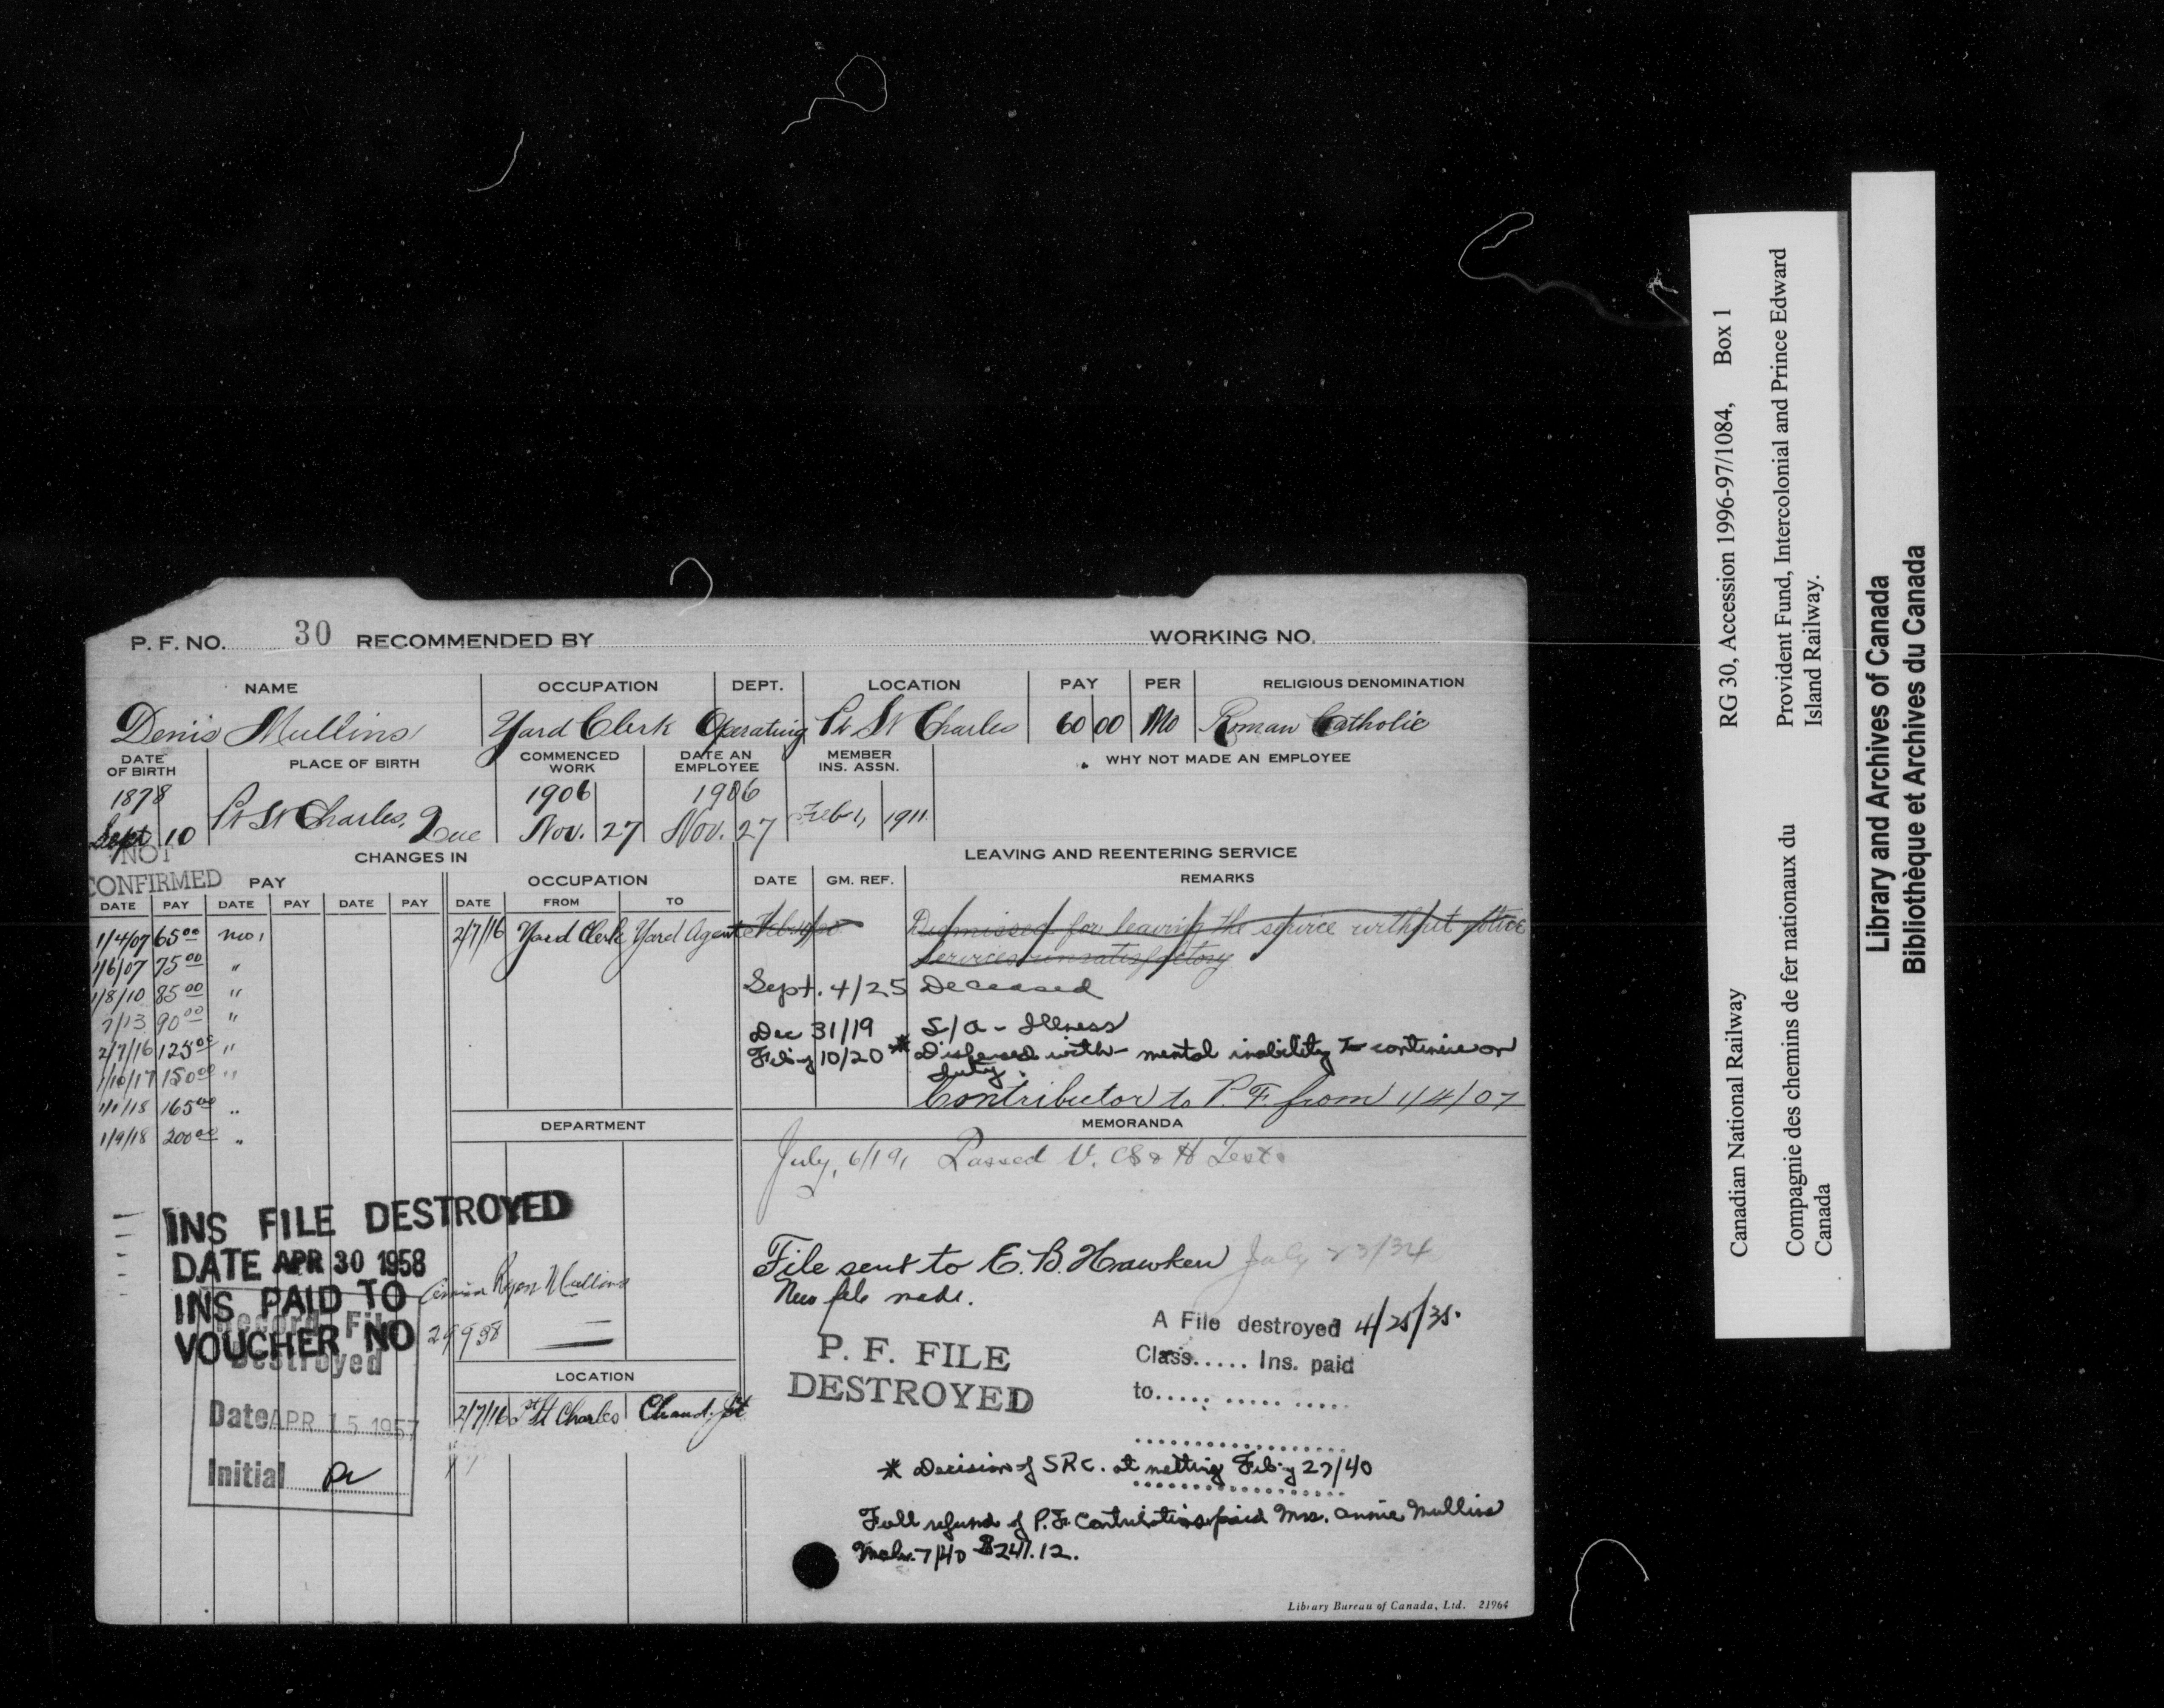 P. F. NO. 30 RECOMMENDED BY WORKING NO.
NAME OCCUPATION DEPT. LOCATION PAY PER RELIGIOUS DENOMINATION
Denis Mullins Yard Clerk Operating Pt St Charles 60 00 Mo Roman Catholic
DATE OF BIRTH PLACE OF BIRTH COMMENCED WORK DATE AN EMPLOYEE MEMBER INS. ASSN. WHY NOT MADE AN EMPLOYEE
1878 1906 1906
Sept 10 Pt St Charles, Que Nov. 27 Nov. 27 Feb 1, 1911
NOT CONFIRMED
CHANGES IN LEAVING AND REENTERING SERVICE
PAY OCCUPATION DATE GM. REF. REMARKS
DATE PAY DATE PAY DATE PAY DATE FROM TO
1/4/07 65 00 mo, 2/7/16 Yard Clerk Yard Agent Dismissed for leaving the service without notice
1/6/07 75 00 " services unsatisfactory
1/8/10 85 00 " Sept. 4/25 Deceased
7/13 90 00 " Dec 31/19 L/a - Illness
2/7/16 125 00 " Feb'y 10/20 * Dispensed with - mental inability to continue on
1/10/17 150 00 " duty.
1/1/18 165 00 " Contributor to P. F. from 1/4/07
1/9/18 200 00 "
DEPARTMENT MEMORANDA
July, 6/19, Passed V. CS & H Test.
INS FILE DESTROYED
DATE APR 30 1958
INS PAID TO Ryan Mullins
VOUCHER NO 29938
Record File
Destroyed
Date APR 15 1957
Initial
LOCATION
2/7/16 Pt St Charles Chaud. Jct
File sent to E. B. Hawken July 23/34
New file made.
A File destroyed 4/25/35.
P. F. FILE
DESTROYED
Class..... Ins. paid
to..... ..... .....
* Decision of SRC. at metting Feb'y 27/40
Full refund of P.F. Contributions paid Mrs. Annie Mullins
Mch. 7/40 $241.12.
Library Bureau of Canada, Ltd. 21964
RG 30, Accession 1996-97/1084, Box 1
Canadian National Railway
Provident Fund, Intercolonial and Prince Edward
Island Railway.
Compagnie des chemins de fer nationaux du
Canada
Library and Archives of Canada
Bibliothèque et Archives du Canada